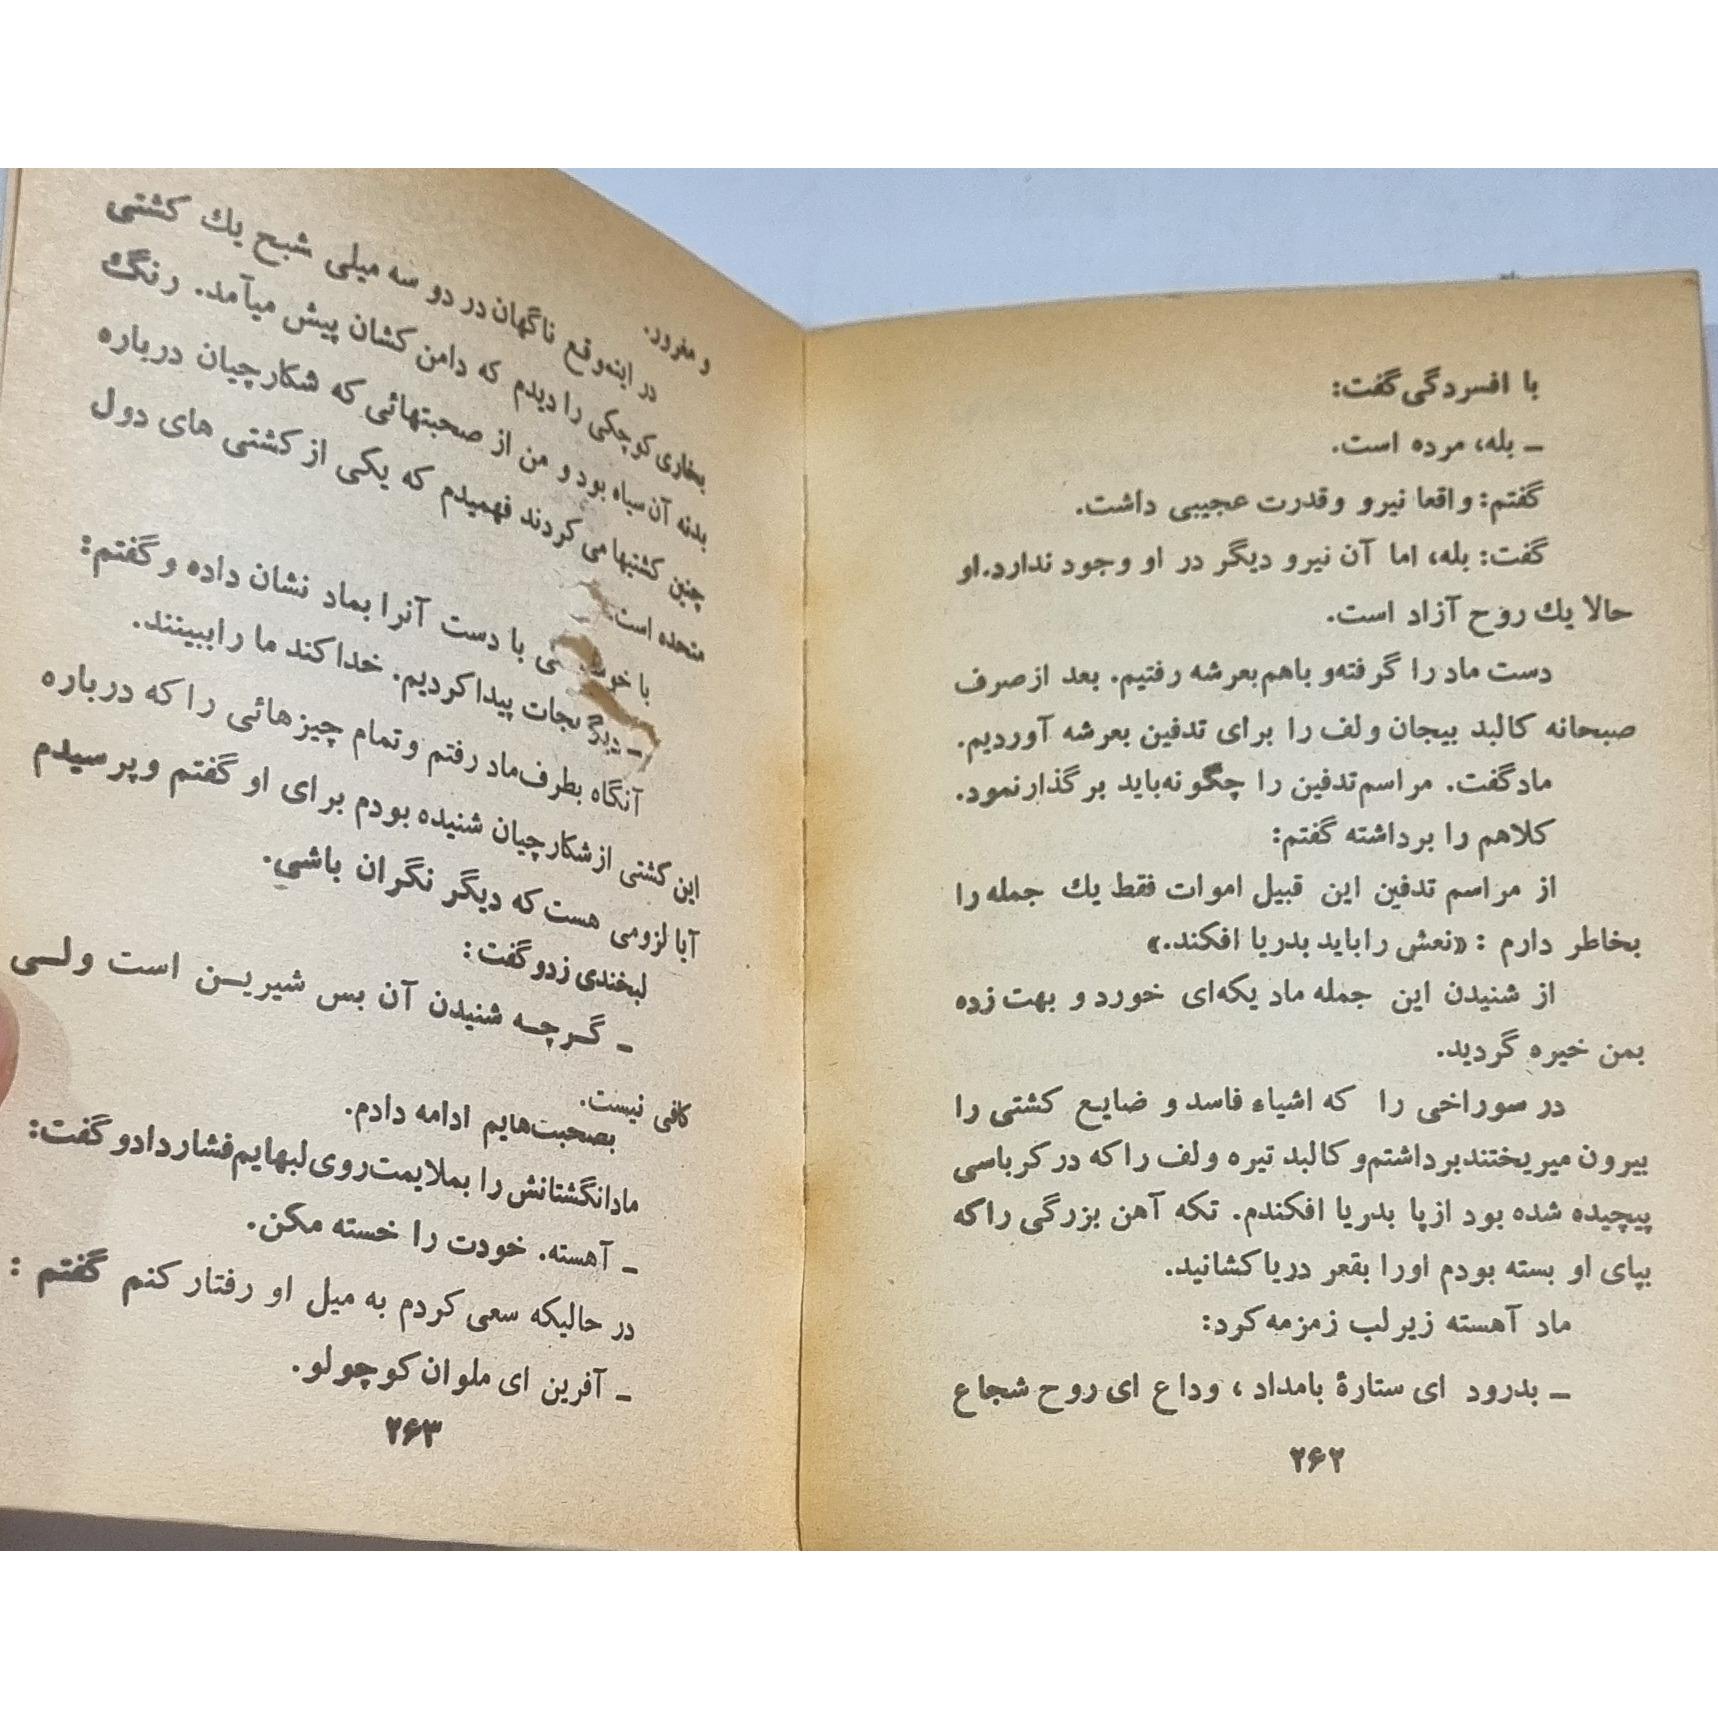 با افسردگی گفت:
ـ بله، مرده است.
گفتم: واقعا نیرو وقدرت عجیبی داشت.
گفت: بله، اما آن نیرو دیگر در او وجود ندارد. او
حالا یك روح آزاد است.
دست ماد را گرفته و باهم بعرشه رفتیم. بعد از صرف
صبحانه کالبد بیجان ولف را برای تدفین بعرشه آوردیم.
ماد گفت. مراسم تدفین را چگونه باید برگذار نمود.
کلاهم را برداشته گفتم:
از مراسم تدفین این قبیل اموات فقط یك جمله را
بخاطر دارم : «نعش را باید بدریا افکند.»
از شنیدن این جمله ماد یکه‌ای خورد و بهت زده
بمن خیره گردید.
در سوراخی را که اشیاء فاسد و ضایع کشتی را
بیرون میریختند برداشتم و کالبد تیره ولف را که در کرباسی
پیچیده شده بود از پا بدریا افکندم. تکه آهن بزرگی را که
بپای او بسته بودم اورا بقعر دریا کشانید.
ماد آهسته زیر لب زمزمه کرد:
ـ بدرود ای ستارۀ بامداد ، وداع ای روح شجاع
۲۶۲
و مغرور.
در اینموقع ناگهان در دو سه میلی شبح یك کشتی
بخاری کوچکی را دیدم که دامن کشان پیش میآمد. رنگ
بدنه آن سیاه بود و من از صحبتهائی که شکارچیان درباره
چنین کشتیها می کردند فهمیدم که یکی از کشتی های دول
متحده است.
با با دست آنرا بماد نشان داده و گفتم:
ـ دیگر نجات پیدا کردیم. خدا کند ما را ببینند.
آنگاه بطرف ماد رفتم و تمام چیزهائی را که درباره
این کشتی از شکارچیان شنیده بودم برای او گفتم و پرسیدم
آیا لزومی هست که دیگر نگران باشی.
لبخندی زدو گفت:
ـ گـرچـه شنیدن آن بس شیریـن است ولـی
کافی نیست.
بصحبت‌هایم ادامه دادم.
ماد انگشتانش را بملایمت روی لبهایم فشار داد و گفت:
ـ آهسته. خودت را خسته مکن.
در حالیکه سعی کردم به میل او رفتار کنم گفتم :
ـ آفرین ای ملوان کوچولو.
۲۶۳